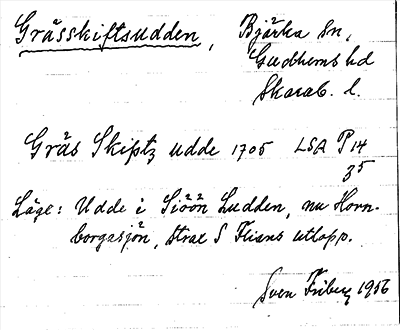 Grässkiftsudden, Bjärka sn,
Gudhems hd
Skarab. l.
Gräs Skiptz udde 1705 LSA P 14
35
Läge: Udde i Siöön Ludden, nu Horn-
borgasjön, strax S Flians utlopp.
Sven Friberg 1956